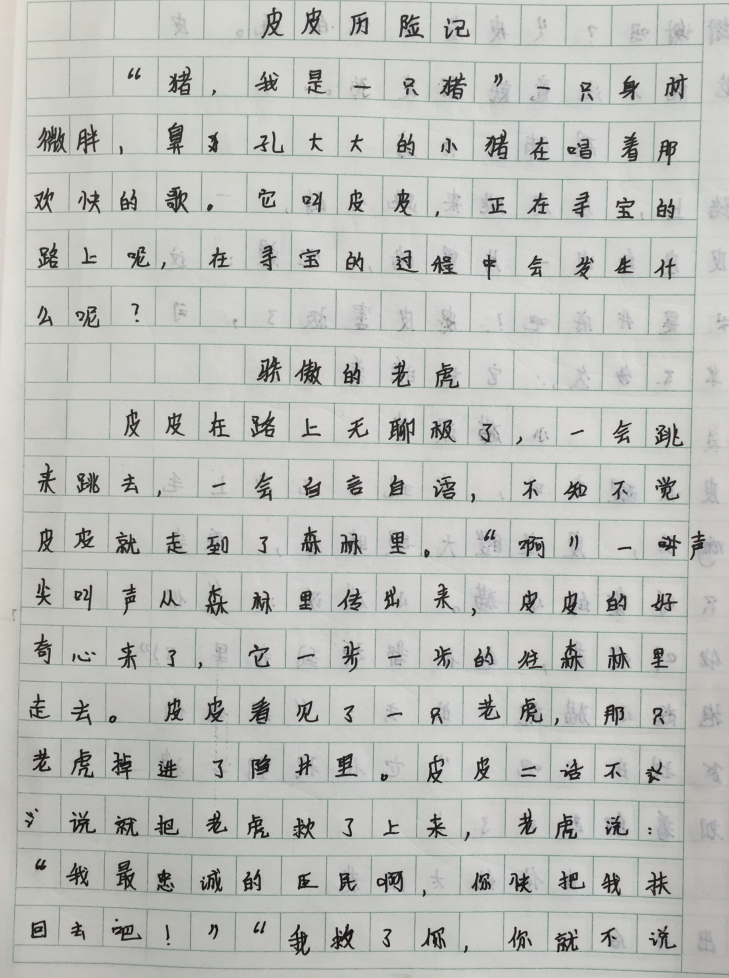 皮皮历险记
“猪，我是一只猪”一只身材
微胖，鼻孔大大的小猪在唱着那
欢快的歌。它叫皮皮，正在寻宝的
路上呢，在寻宝的过程中会发生什
么呢？
骄傲的老虎
皮皮在路上无聊极了，一会跳
来跳去，一会自言自语，不知不觉
皮皮就走到了森林里。“啊”一叫声
尖叫声从森林里传出来，皮皮的好
奇心来了，它一步一步的往森林里
走去。皮皮看见了一只老虎，那只
老虎掉进了陷井里。皮皮二话不
说就把老虎救了上来，老虎说：
“我最忠诚的臣民啊，你快把我扶
回去吧！”“我救了你，你就不说